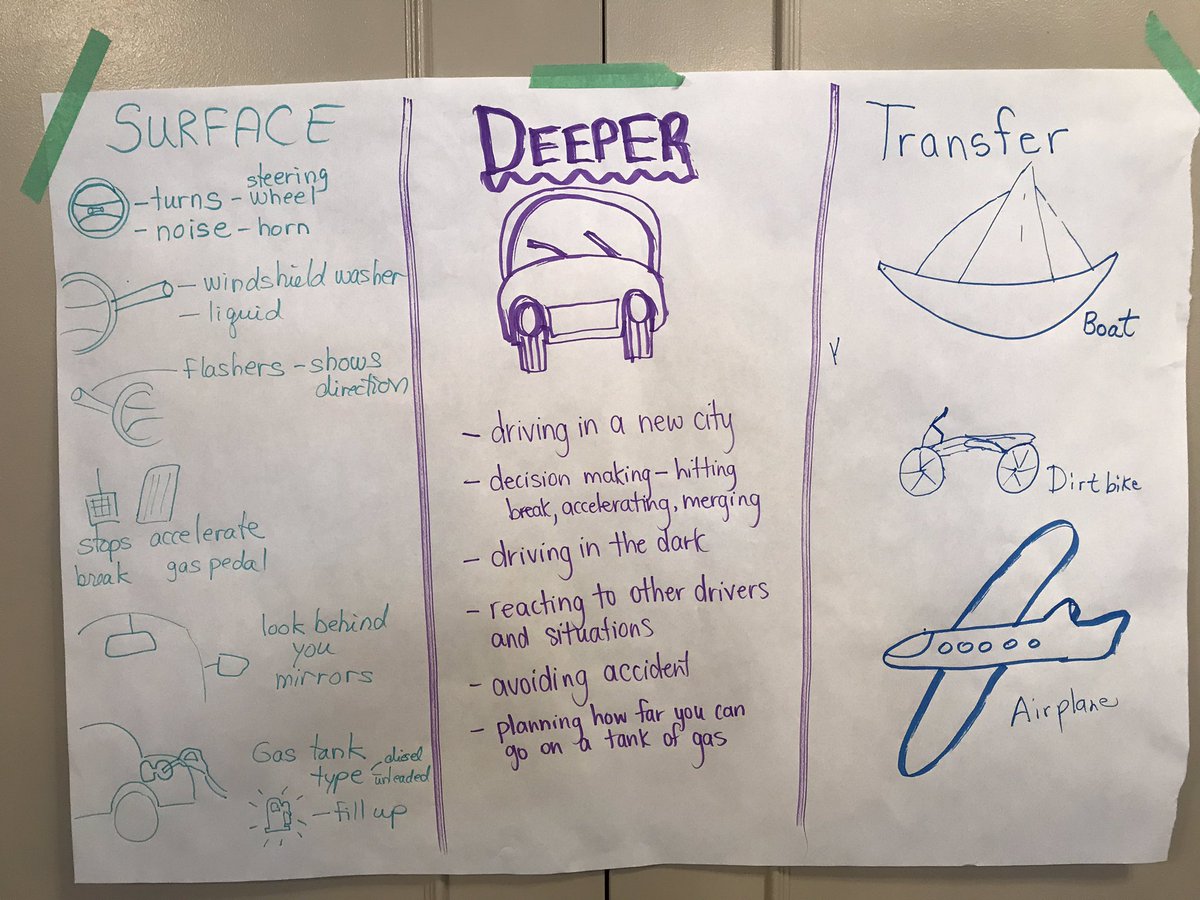 SURFACE
- turns - steering wheel
- noise - horn
- windshield washer
- liquid
flashers - shows
direction
stops
break
accelerate
gas pedal
look behind
you
mirrors
Gas tank
type diesel
unleaded
- fill up
DEEPER
- driving in a new city
- decision making - hitting
break, accelerating, merging
- driving in the dark
- reacting to other drivers
and situations
- avoiding accident
- planning how far you can
go on a tank of gas
Transfer
Boat
Dirt bike
Airplane